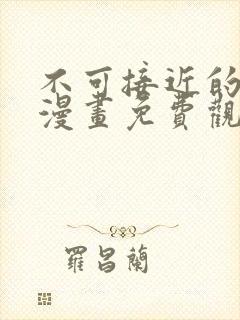 不可接近的
漫畫免費觀
羅昌蘭